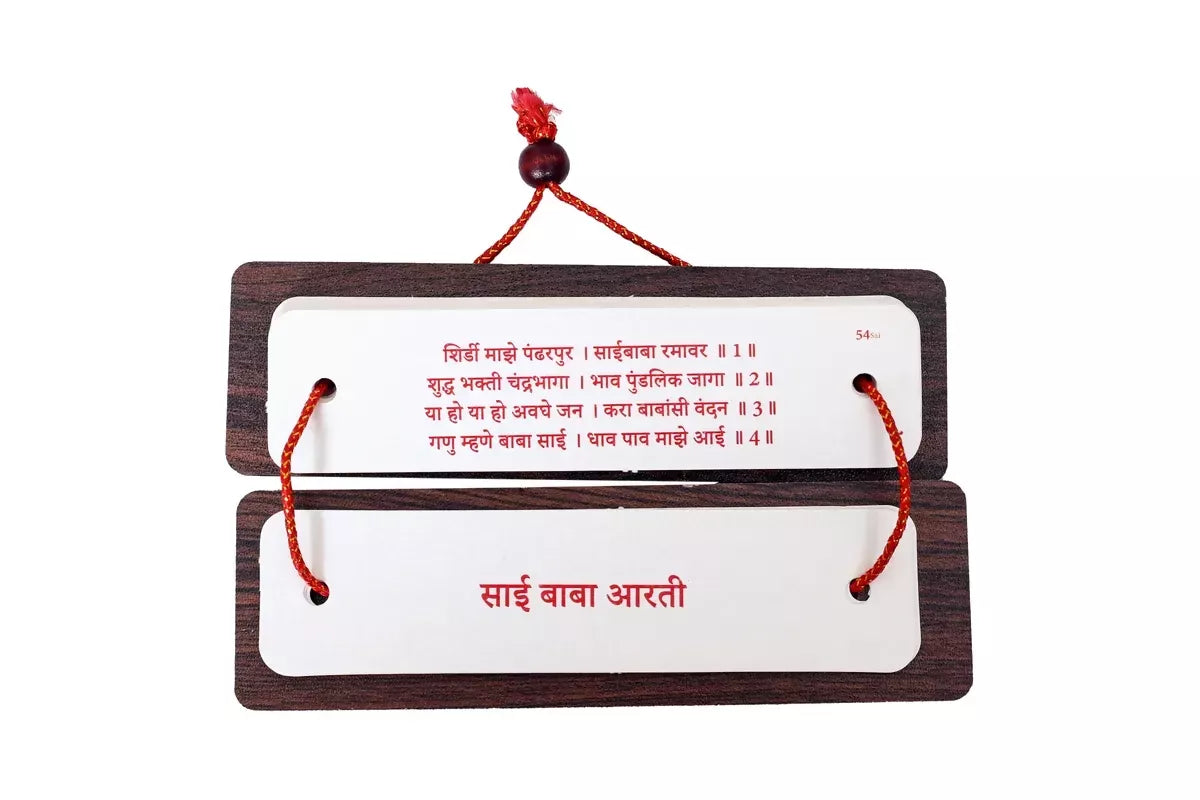 54Sai
शिर्डी माझे पंढरपुर । साईबाबा रमावर ॥ 1 ॥
शुद्ध भक्ती चंद्रभागा । भाव पुंडलिक जागा ॥ 2 ॥
या हो या हो अवघे जन । करा बाबांसी वंदन ॥ 3 ॥
गणु म्हणे बाबा साई । धाव पाव माझे आई ॥ 4 ॥
साई बाबा आरती